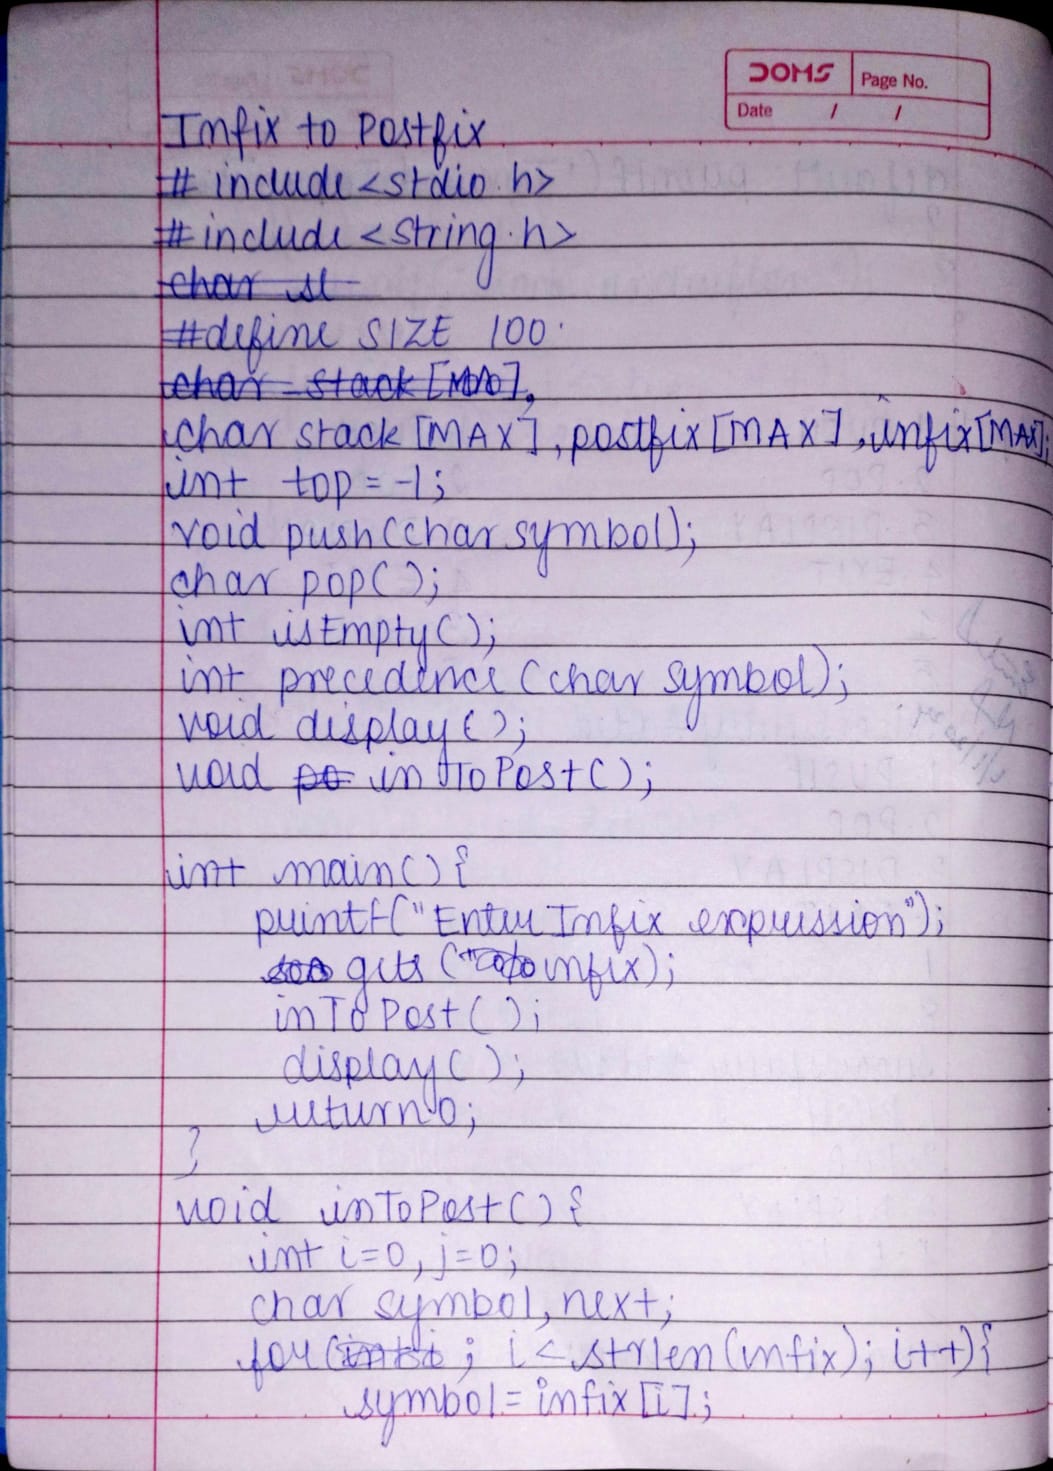 DOMS
Page No.
Date / /
Infix to Postfix
# include <stdio.h>
# include <string.h>
char st
#define SIZE 100
char stack [MAX],
char stack [MAX], postfix [MAX], infix [MAX];
int top = -1;
void push (char symbol);
char pop ();
int isEmpty ();
int precedence (char symbol);
void display ();
void po inToPost ();
int main () {
printf ("Enter Infix expression");
gets (infix);
inToPost ();
display ();
return 0;
}
void inToPost () {
int i=0, j=0;
char symbol, next;
for ( ; i < strlen (infix); i++) {
symbol = infix [i];